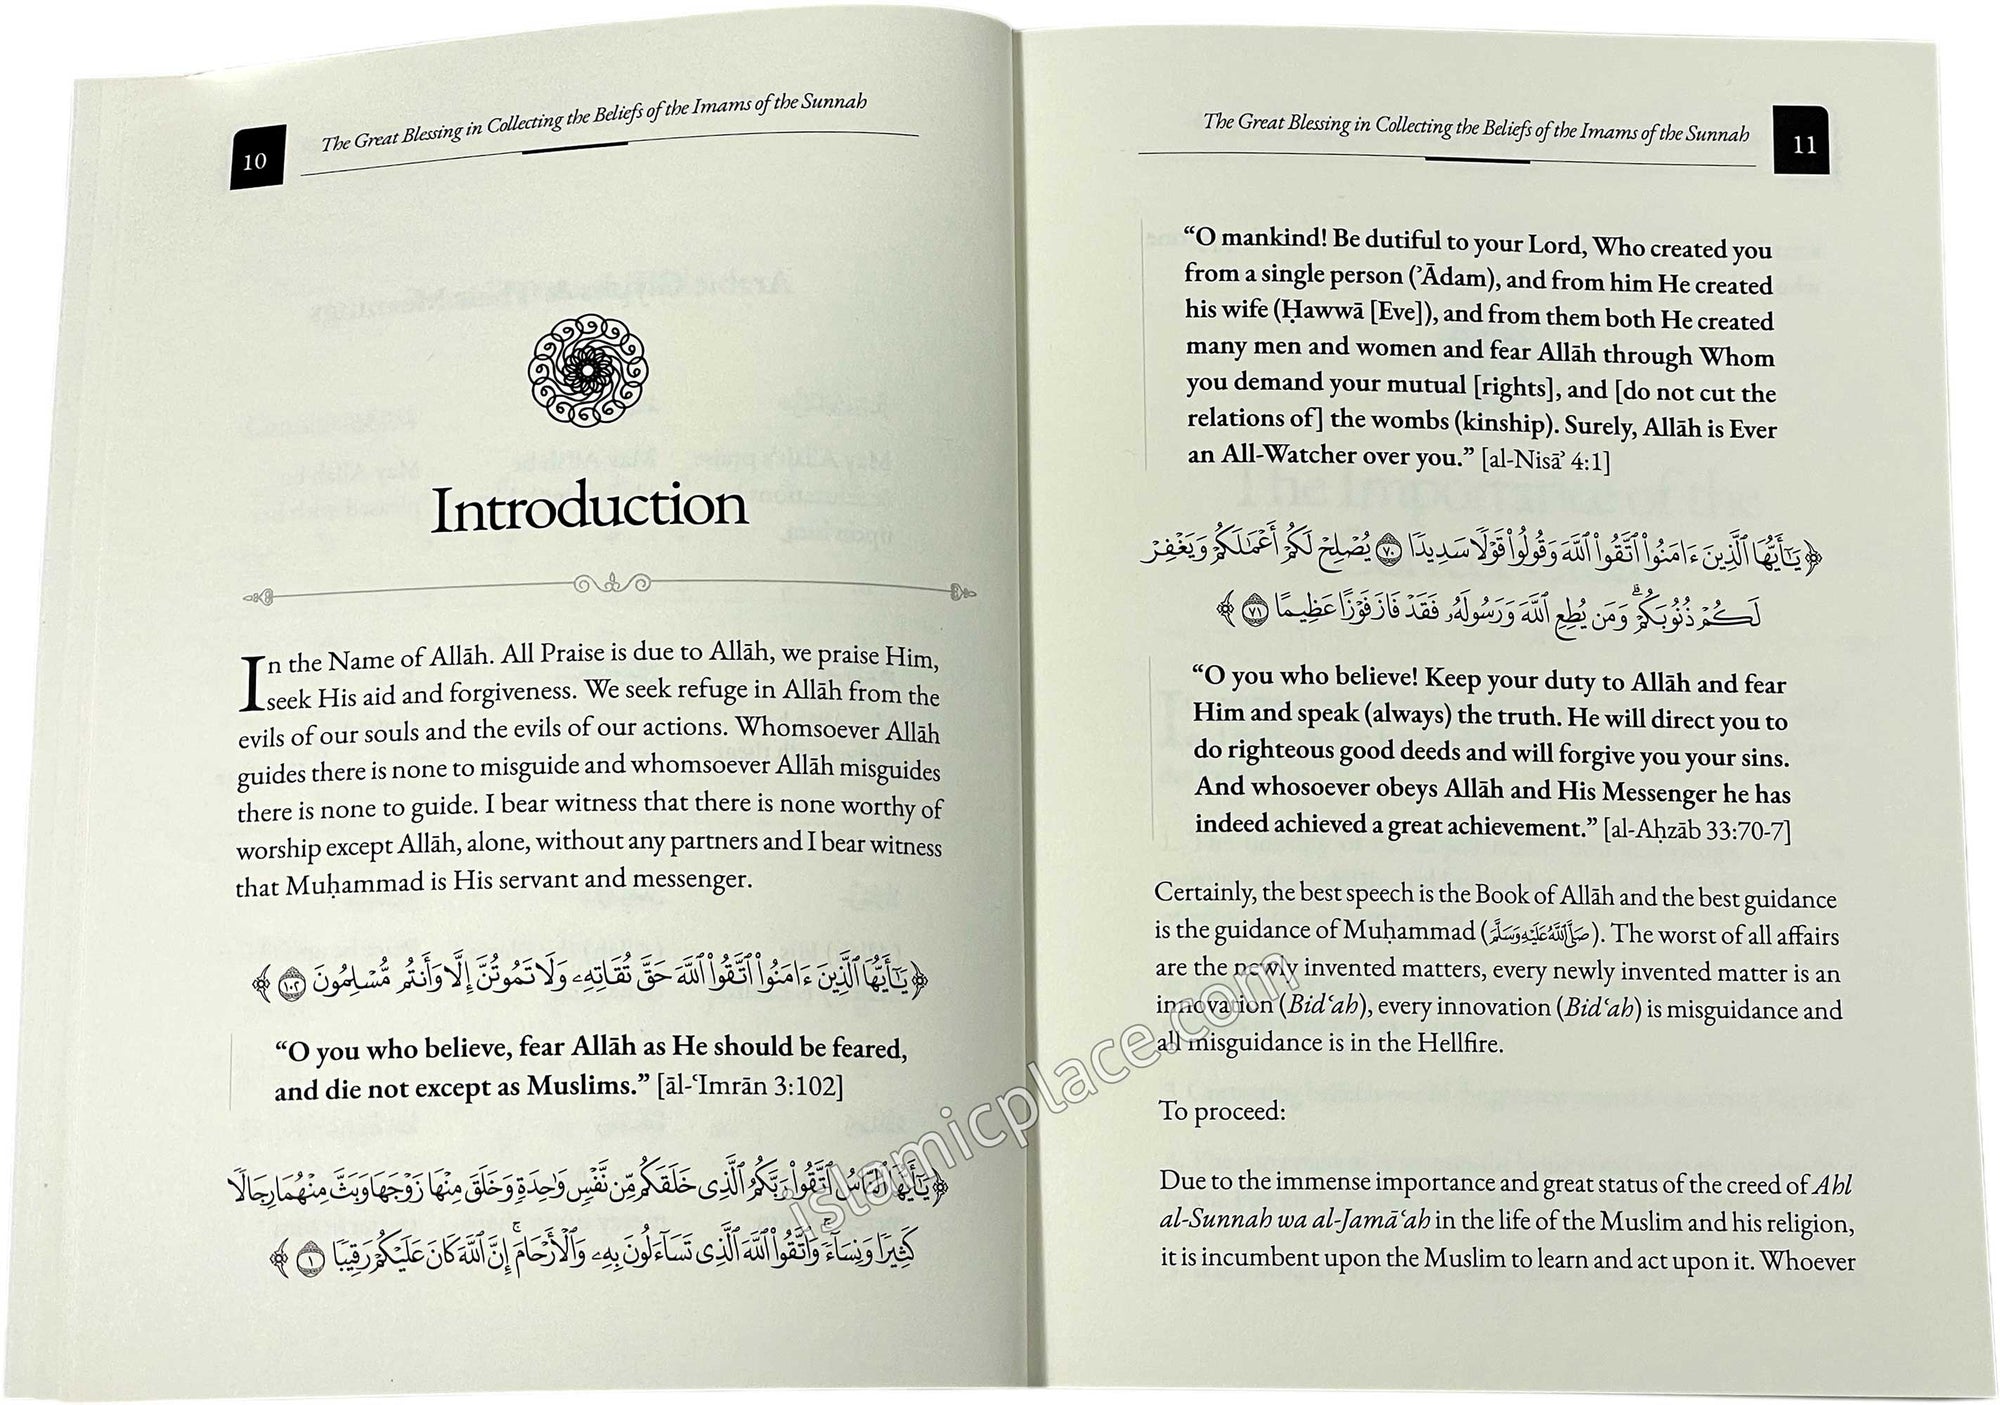 10
The Great Blessing in Collecting the Beliefs of the Imams of the Sunnah
Introduction
In the Name of Allāh. All Praise is due to Allāh, we praise Him,
seek His aid and forgiveness. We seek refuge in Allāh from the
evils of our souls and the evils of our actions. Whomsoever Allāh
guides there is none to misguide and whomsoever Allāh misguides
there is none to guide. I bear witness that there is none worthy of
worship except Allāh, alone, without any partners and I bear witness
that Muḥammad is His servant and messenger.
﴿يَـٰٓأَيُّهَا ٱلَّذِينَ ءَامَنُوا۟ ٱتَّقُوا۟ ٱللَّهَ حَقَّ تُقَاتِهِۦ وَلَا تَمُوتُنَّ إِلَّا وَأَنتُم مُّسْلِمُونَ ١٠٢﴾
“O you who believe, fear Allāh as He should be feared,
and die not except as Muslims.” [āl-ʿImrān 3:102]
﴿يَـٰٓأَيُّهَا ٱلنَّاسُ ٱتَّقُوا۟ رَبَّكُمُ ٱلَّذِى خَلَقَكُم مِّن نَّفْسٍ وَٰحِدَةٍ وَخَلَقَ مِنْهَا زَوْجَهَا وَبَثَّ مِنْهُمَا رِجَالًا
كَثِيرًا وَنِسَآءً ۚ وَٱتَّقُوا۟ ٱللَّهَ ٱلَّذِى تَسَآءَلُونَ بِهِۦ وَٱلْأَرْحَامَ ۚ إِنَّ ٱللَّهَ كَانَ عَلَيْكُمْ رَقِيبًا ١﴾
The Great Blessing in Collecting the Beliefs of the Imams of the Sunnah
11
“O mankind! Be dutiful to your Lord, Who created you
from a single person (ʾĀdam), and from him He created
his wife (Ḥawwā [Eve]), and from them both He created
many men and women and fear Allāh through Whom
you demand your mutual [rights], and [do not cut the
relations of] the wombs (kinship). Surely, Allāh is Ever
an All-Watcher over you.” [al-Nisāʾ 4:1]
﴿يَـٰٓأَيُّهَا ٱلَّذِينَ ءَامَنُوا۟ ٱتَّقُوا۟ ٱللَّهَ وَقُولُوا۟ قَوْلًا سَدِيدًا ٧٠ يُصْلِحْ لَكُمْ أَعْمَـٰلَكُمْ وَيَغْفِرْ
لَكُمْ ذُنُوبَكُمْ ۗ وَمَن يُطِعِ ٱللَّهَ وَرَسُولَهُۥ فَقَدْ فَازَ فَوْزًا عَظِيمًا ٧١﴾
“O you who believe! Keep your duty to Allāh and fear
Him and speak (always) the truth. He will direct you to
do righteous good deeds and will forgive you your sins.
And whosoever obeys Allāh and His Messenger he has
indeed achieved a great achievement.” [al-Aḥzāb 33:70-7]
Certainly, the best speech is the Book of Allāh and the best guidance
is the guidance of Muḥammad (صَلَّى اللَّهُ عَلَيْهِ وَسَلَّمَ). The worst of all affairs
are the newly invented matters, every newly invented matter is an
innovation (Bidʿah), every innovation (Bidʿah) is misguidance and
all misguidance is in the Hellfire.
To proceed:
Due to the immense importance and great status of the creed of Ahl
al-Sunnah wa al-Jamāʿah in the life of the Muslim and his religion,
it is incumbent upon the Muslim to learn and act upon it. Whoever
islamicplace.com